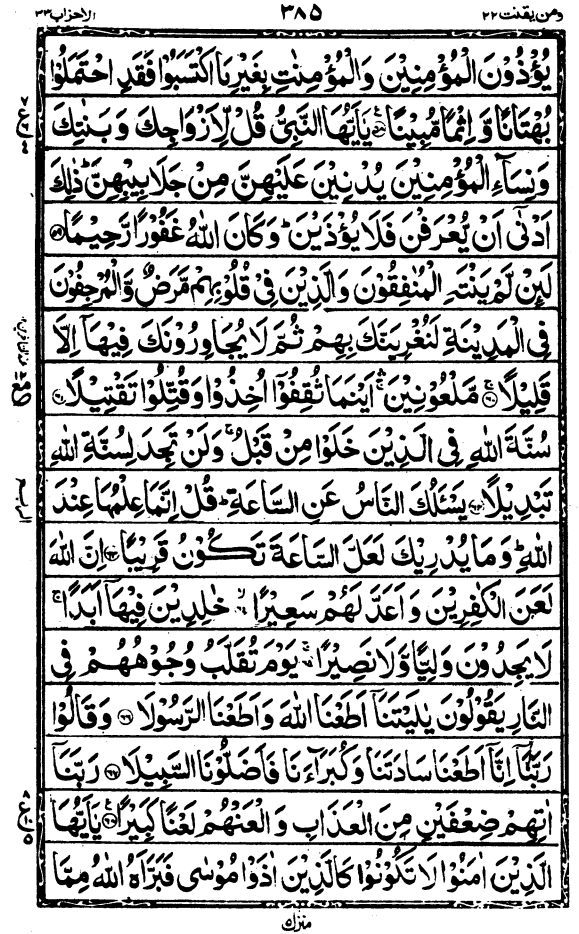 ومن يقنت ٢٢ ٣٨٥ الاحزاب ٣٣
يُؤْذُوْنَ الْمُؤْمِنِيْنَ وَالْمُؤْمِنٰتِ بِغَيْرِ مَا اكْتَسَبُوْا فَقَدِ احْتَمَلُوْا
بُهْتَانًا وَّاِثْمًا مُّبِيْنًا ۝٥٨ يٰۤاَيُّهَا النَّبِيُّ قُلْ لِّاَزْوَاجِكَ وَبَنٰتِكَ
وَنِسَآءِ الْمُؤْمِنِيْنَ يُدْنِيْنَ عَلَيْهِنَّ مِنْ جَلَابِيْبِهِنَّ ؕ ذٰلِكَ
اَدْنٰۤى اَنْ يُّعْرَفْنَ فَلَا يُؤْذَيْنَ ؕ وَكَانَ اللّٰهُ غَفُوْرًا رَّحِيْمًا ۝٥٩
لَئِنْ لَّمْ يَنْتَهِ الْمُنٰفِقُوْنَ وَالَّذِيْنَ فِيْ قُلُوْبِهِمْ مَّرَضٌ وَّالْمُرْجِفُوْنَ
فِي الْمَدِيْنَةِ لَنُغْرِيَنَّكَ بِهِمْ ثُمَّ لَا يُجَاوِرُوْنَكَ فِيْهَاۤ اِلَّا
قَلِيْلًا ۝٦٠ مَّلْعُوْنِيْنَ ۛۚ اَيْنَمَا ثُقِفُوْۤا اُخِذُوْا وَقُتِّلُوْا تَقْتِيْلًا ۝٦١
سُنَّةَ اللّٰهِ فِي الَّذِيْنَ خَلَوْا مِنْ قَبْلُ ۚ وَلَنْ تَجِدَ لِسُنَّةِ اللّٰهِ
تَبْدِيْلًا ۝٦٢ يَسْـَٔلُكَ النَّاسُ عَنِ السَّاعَةِ ؕ قُلْ اِنَّمَا عِلْمُهَا عِنْدَ
اللّٰهِ ؕ وَمَا يُدْرِيْكَ لَعَلَّ السَّاعَةَ تَكُوْنُ قَرِيْبًا ۝٦٣ اِنَّ اللّٰهَ
لَعَنَ الْكٰفِرِيْنَ وَاَعَدَّ لَهُمْ سَعِيْرًا ۝٦٤ۙ خٰلِدِيْنَ فِيْهَاۤ اَبَدًا ۚ
لَا يَجِدُوْنَ وَلِيًّا وَّلَا نَصِيْرًا ۝٦٥ۚ يَوْمَ تُقَلَّبُ وُجُوْهُهُمْ فِي
النَّارِ يَقُوْلُوْنَ يٰلَيْتَنَاۤ اَطَعْنَا اللّٰهَ وَاَطَعْنَا الرَّسُوْلَا ۝٦٦ وَقَالُوْا
رَبَّنَاۤ اِنَّاۤ اَطَعْنَا سَادَتَنَا وَكُبَرَآءَنَا فَاَضَلُّوْنَا السَّبِيْلَا ۝٦٧ رَبَّنَاۤ
اٰتِهِمْ ضِعْفَيْنِ مِنَ الْعَذَابِ وَالْعَنْهُمْ لَعْنًا كَبِيْرًا ۝٦٨ يٰۤاَيُّهَا
الَّذِيْنَ اٰمَنُوْا لَا تَكُوْنُوْا كَالَّذِيْنَ اٰذَوْا مُوْسٰى فَبَرَّاَهُ اللّٰهُ مِمَّا
منزل ٥